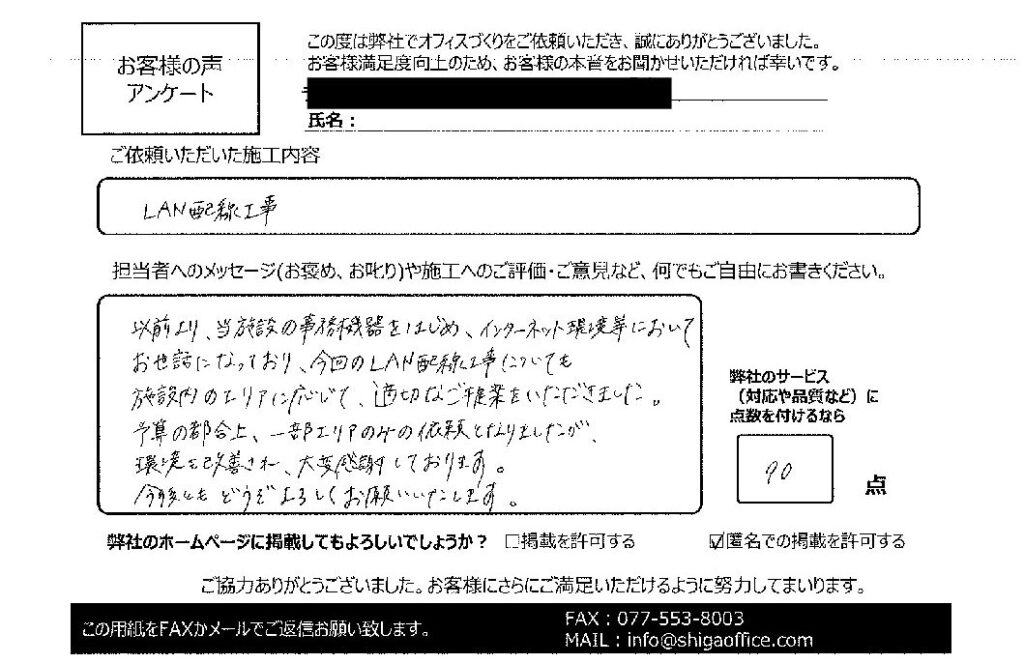 お客様の声
アンケート
この度は弊社でオフィスづくりをご依頼いただき、誠にありがとうございました。
お客様満足度向上のため、お客様の本音をお聞かせいただければ幸いです。
氏名：
ご依頼いただいた施工内容
LAN配線工事
担当者へのメッセージ(お褒め、お叱り)や施工へのご評価・ご意見など、何でもご自由にお書きください。
以前より、当施設の事務機器をはじめ、インターネット環境等において
お世話になっており、今回のLAN配線工事についても
施設内のエリアに応じて、適切なご提案をいただきました。
予算の都合上、一部エリアのみの依頼となりましたが、
環境も改善され、大変感謝しております。
今後ともどうぞよろしくお願いいたします。
弊社のサービス
（対応や品質など）に
点数を付けるなら
90
点
弊社のホームページに掲載してもよろしいでしょうか？ □掲載を許可する ☑匿名での掲載を許可する
ご協力ありがとうございました。お客様にさらにご満足いただけるように努力してまいります。
この用紙をFAXかメールでご返信お願い致します。
FAX：077-553-8003
MAIL：info@shigaoffice.com